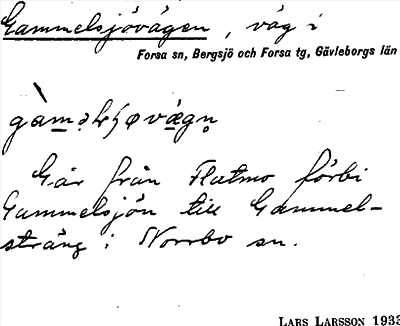 Gammelsjövägen, väg i
Forsa sn, Bergsjö och Forsa tg, Gävleborgs län
Går från Flatmo förbi
Gammelsjön till Gammel-
sträng i Norrbo sn.
LARS LARSSON 1933